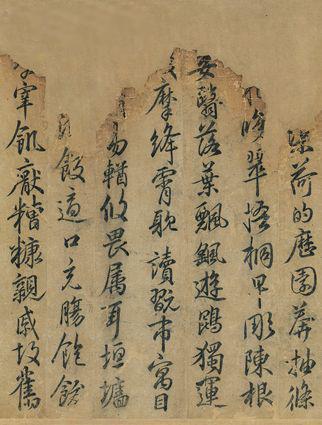 渠荷的歷園莽抽條
晚翠梧桐早彫陳根
委翳落葉飄颻遊鵾獨運
摩絳霄耽讀翫市寓目
易輶攸畏属耳垣墻
飯適口充腸飽飫
宰飢厭糟糠親戚故舊